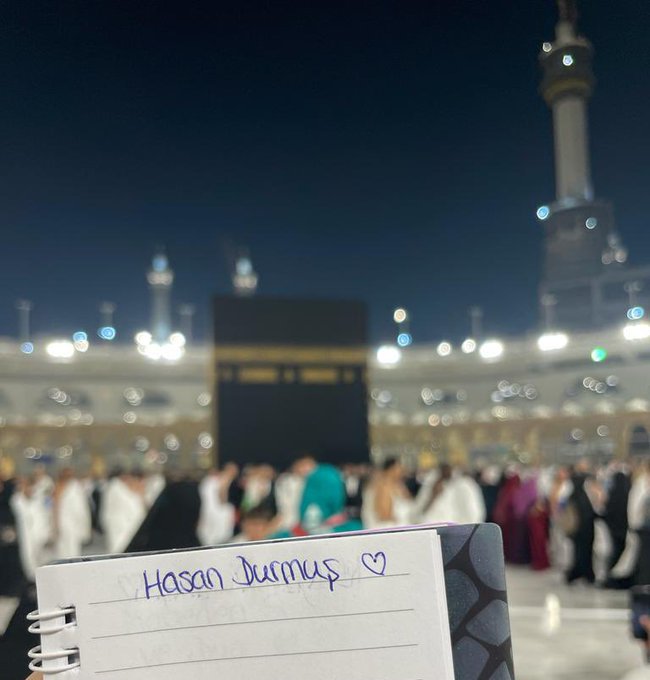 Hasan Durmuş ♡